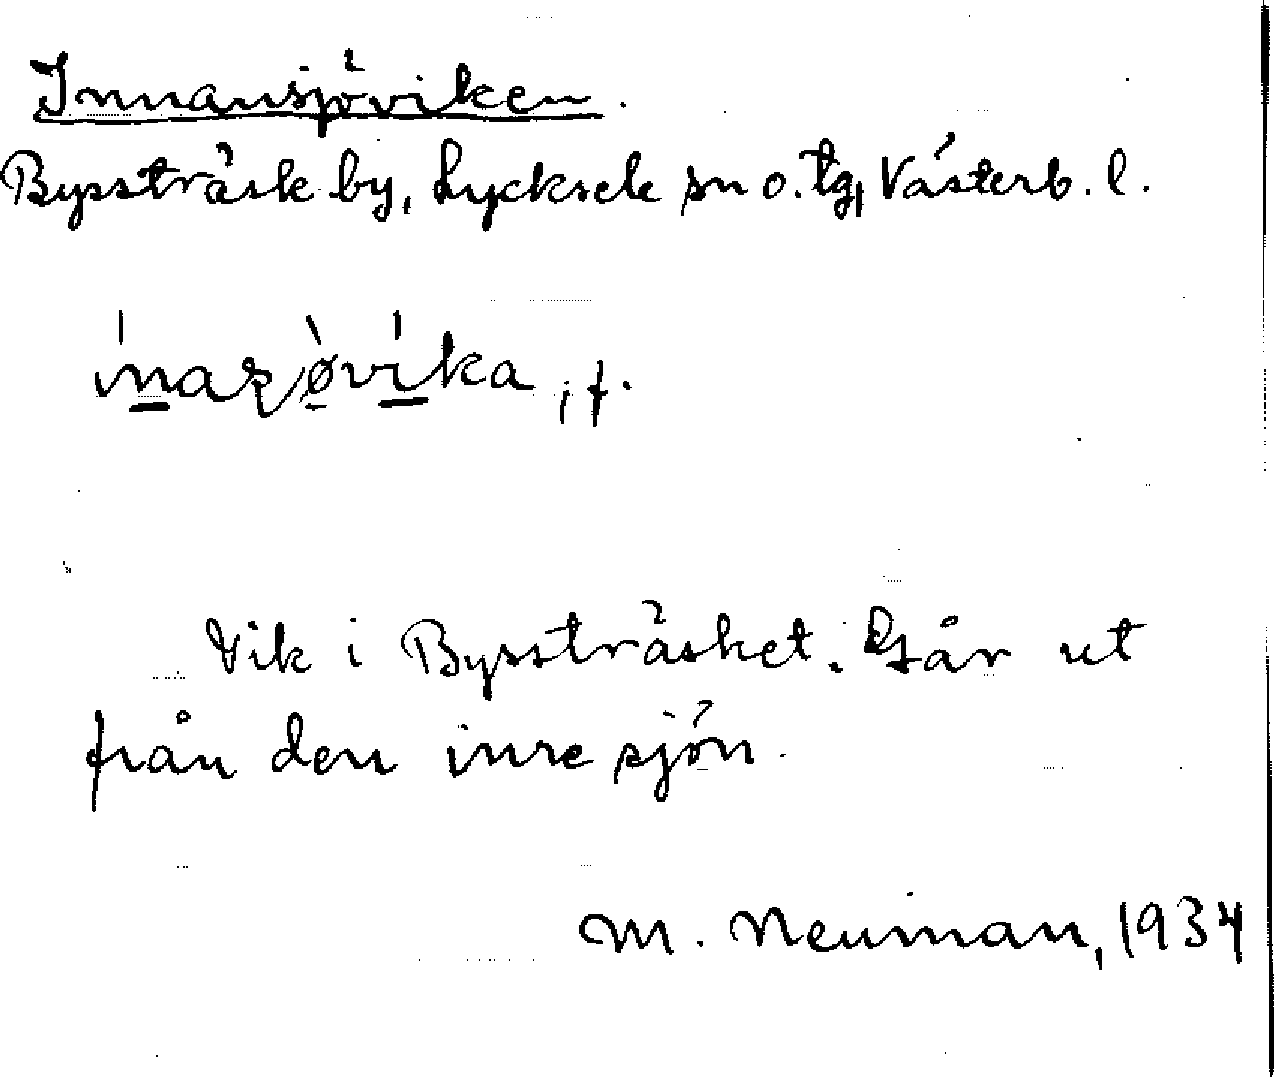 Innansjöviken.
Byssträsk by, Lycksele sn o. tg, Västerb. l.
f.
Vik i Bysstråsket. Går ut
från den inre sjön.
M. Neuman, 1934